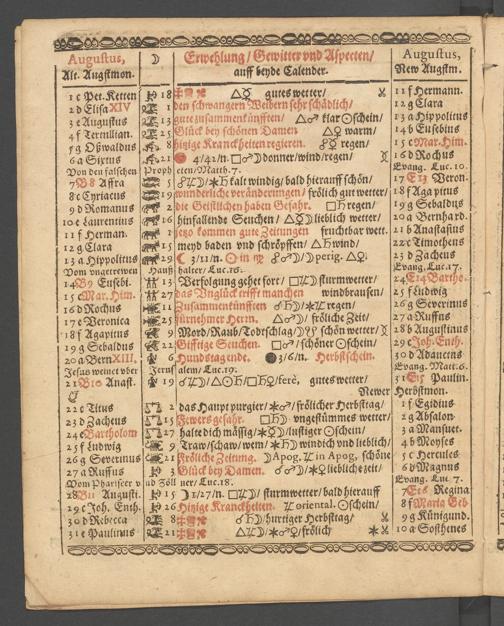 Augustus, ☽ Erwehlung / Gewitter vnd Aspecten / Augustus,
Alt. Augstmon. auff beyde Calender. New Augstm.
1 c Pet. Ketten 18 △☿ gutes wetter / 11 f Hermann.
2 d Elisa XIV 1 den schwangern Weibern sehr schädlich / 12 g Clara
3 e Augustus 13 gute zusammenkünfften / △♂ klar ☉schein / 13 a Hippolitus
4 f Termilian. 25 Glück bey schönen Damen △♀ warm / 14 b Eusebius
5 g Oßwaldus hitzige Kranckheit regieren. regen / 15 c Mar. Him.
6 a Sixtus 4/42/n. □♂☽ donner / wind / regen / 16 d Rochus
Von den falschen Proph eten / Matth. 7. Evang. Luc. 10.
7 B8 Affra kalt windig / bald hierauff schön / 17 E13 Veron.
8 c Cyriacus 19 wunderliche veränderungen / frölich gut wetter / 18 f Agapitus
9 d Romanus 2 die Geistlichen haben Gefahr. □♄ regen / 19 g Sebaldus
10 e Laurentius 16 hinfallende Seuchen / lieblich wetter / 20 a Bernhard.
11 f Herman. 1 jetzo kommen gute Zeitungen fruchtbar wett. 21 b Anastasius
12 g Clara 15 meyd baden vnd schröpffen / △♄ wind / 22 c Timotheus
13 a Hippolitus 29 3/11/n. ☉ in ♍ perig. △♀. 23 d Zacheus
Vom vngetrewen Hauß halter / Luc. 16. Evang. Luc. 17.
14 B9 Eusebi. 13 Verfolgung gehet fort / sturmwetter / 24 E14 Bartho.
15 c Mar. Him. 27 das Vnglück trifft manchen windbrausen / 25 f Ludwig
16 d Rochus 11 Zusammenkünfften regen / 26 g Severinus
17 e Veronica 25 fürnehmer Herrn △♂☽ / fröliche Zeit / 27 a Ruffus
18 f Agapitus 9 Mord / Raub / Todschlag / schön wetter / 28 b Augustinus
19 g Sebaldus 22 Gifftige Seuchen. □♂ / schöner ☉schein / 29 c Joh. Enth.
20 a Bern XIII. 6 Hundstag ende. 3/6/n. Herbstschein. 30 d Adauctus
Jesus weinet vber Jerus alem / Luc. 19. Evang. Matt. 6.
21 B10 Anast. 19 gutes wetter / 31 E15 Paulin.
Newer Herbstmon.
22 c Titus 2 das Haupt purgier / frölicher Herbsttag / 1 f Egidius
23 d Zacheus 15 Fewersgefahr. □♄☽ vngestümmes wetter / 2 g Absalon
24 e Bartholom 27 halte dich mässig / lustiger ☉schein / 3 a Mansuet.
25 f Ludwig 9 Traw / schaw / wem / windich vnd lieblich / 4 b Moyses
26 g Severinus 21 Fröliche Zeitung. ☽ Apog. in Apog. schöne 5 c Hercules
27 a Ruffus 3 Glück bey Damen. liebliche zeit / 6 d Magnus
Vom Phariseer v nd Zöll ner / Luc. 18. Evang. Luc. 7.
28 B11 Augusti. 15 ☽ 1/27/n. sturmwetter / bald hierauff 7 E16 Regina
29 c Joh. Enth. 26 Hitzige Kranckheiten. oriental. ☉schein / 8 f Maria Geb
30 d Rebecca 8 hurtiger Herbsttag / 9 g Künigund.
31 e Paulinus 21 frölich 10 a Sosthenes